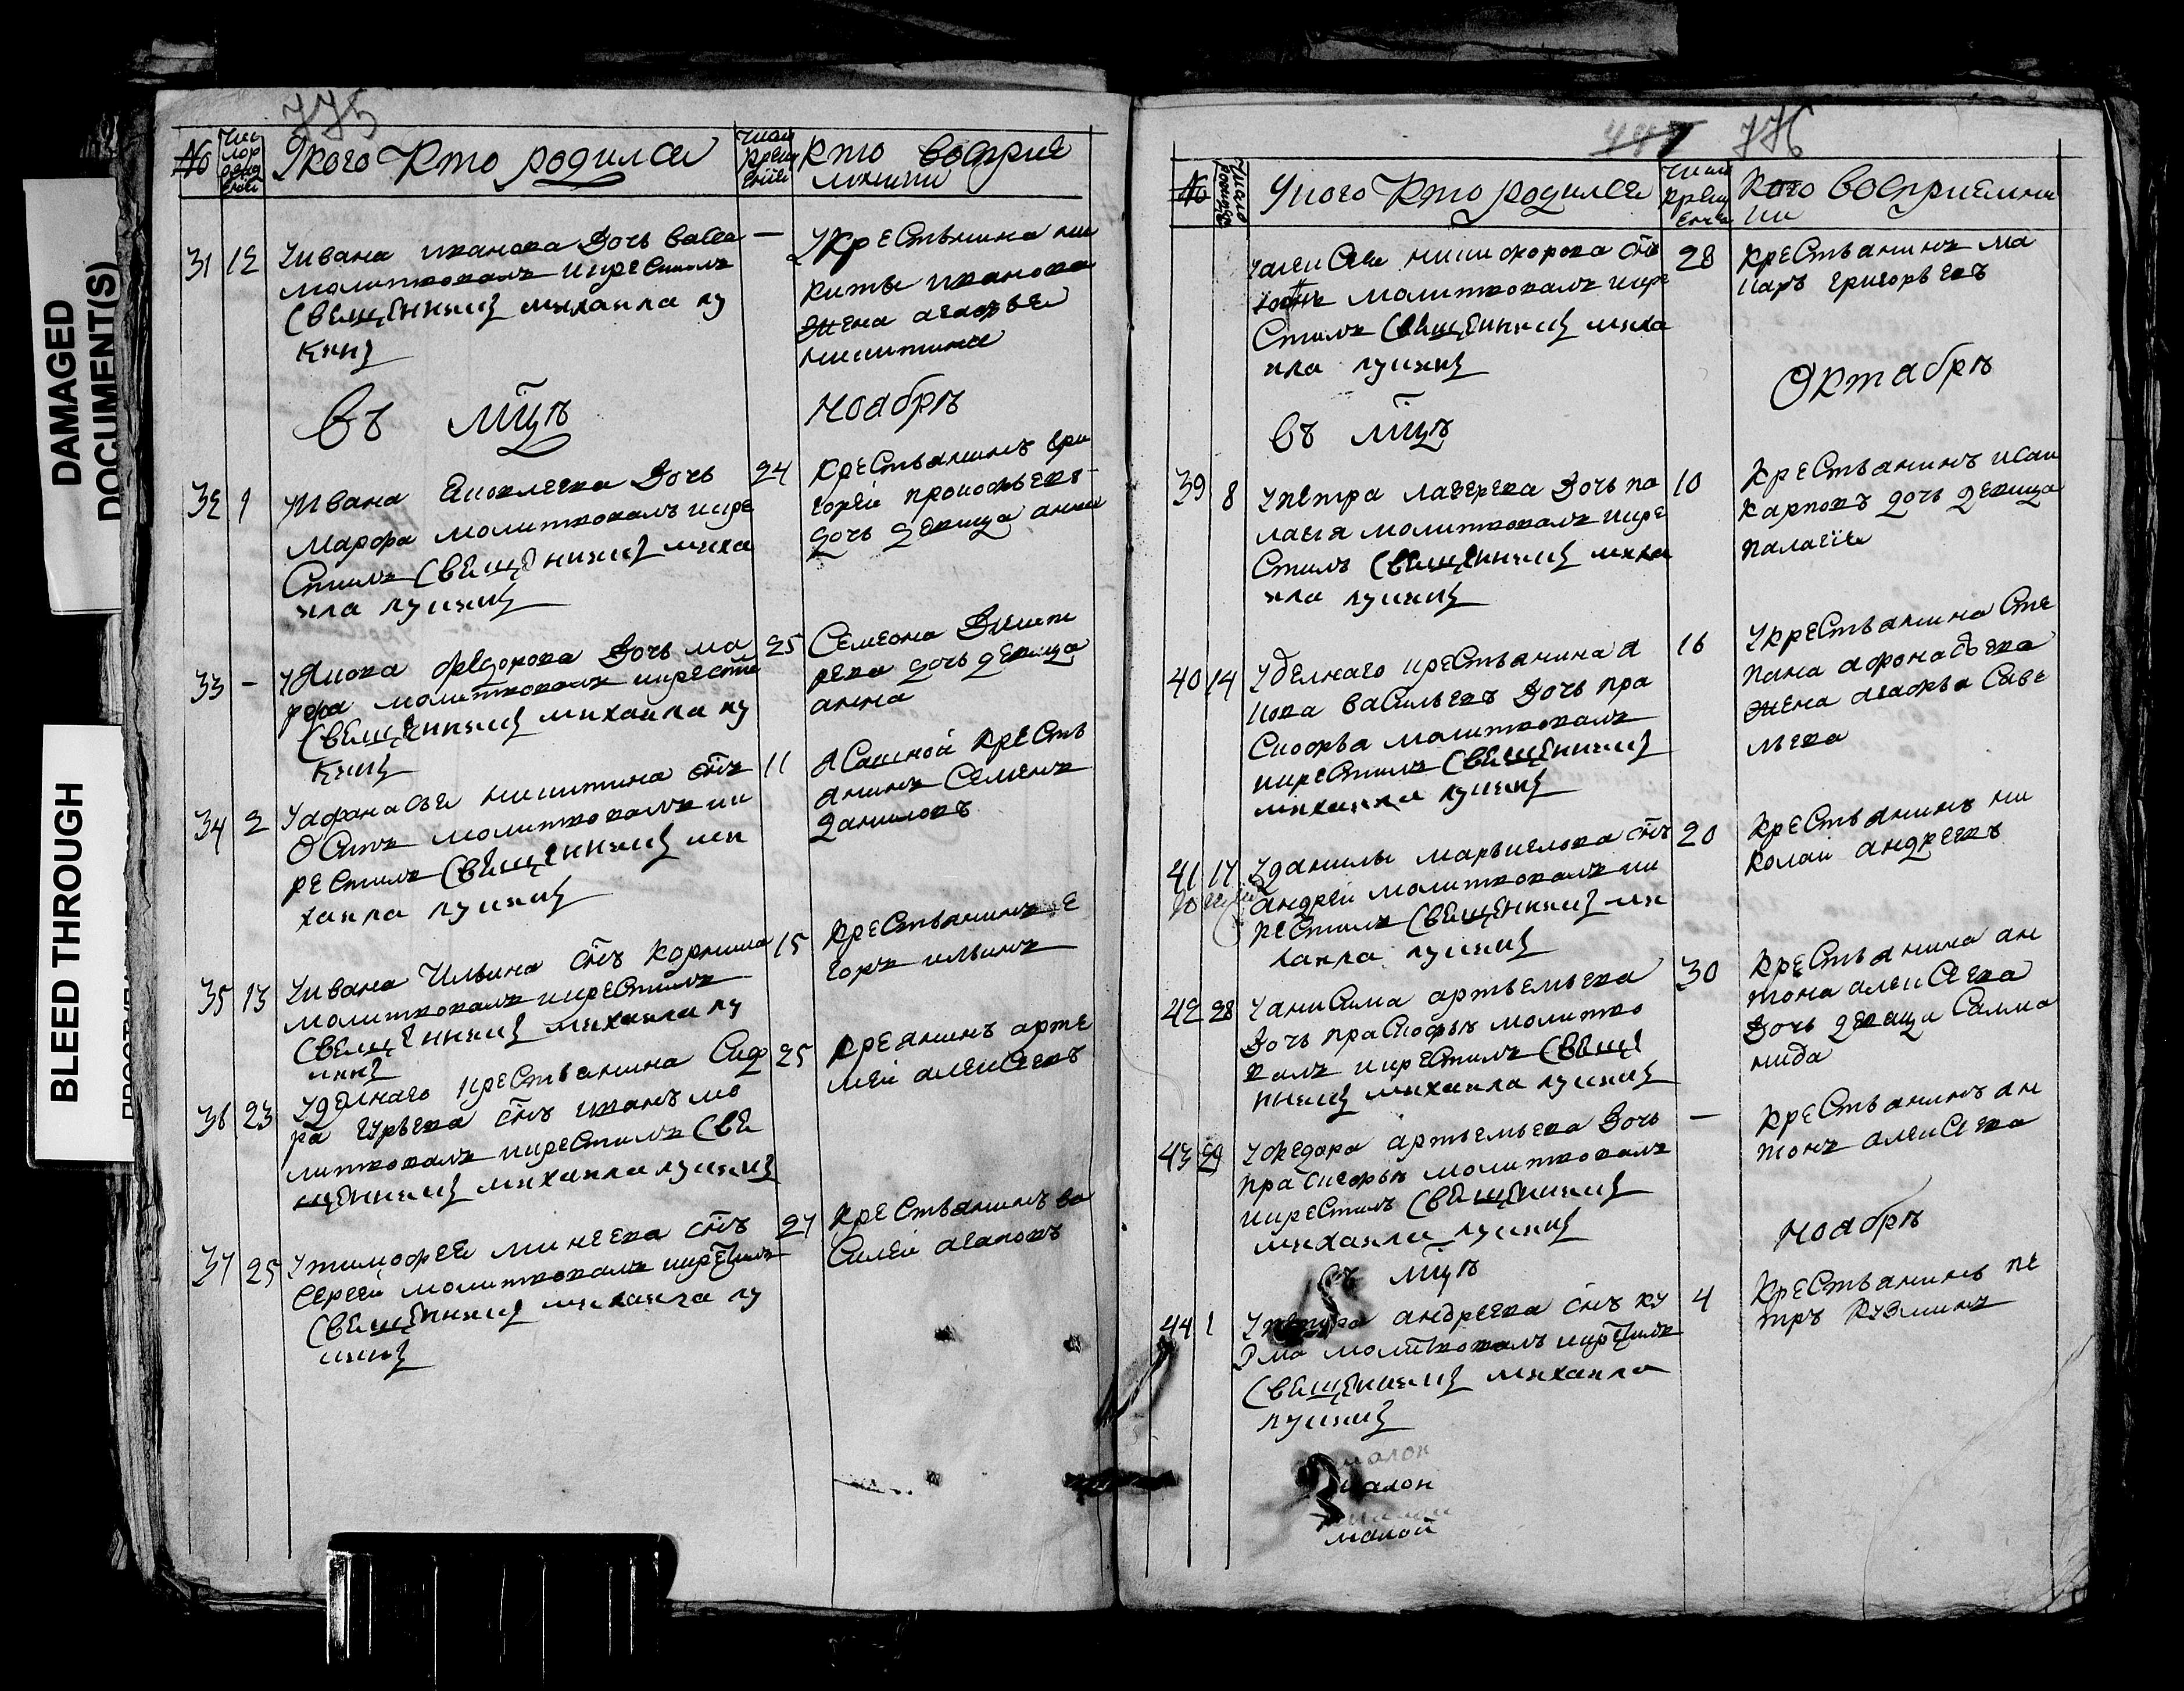 DAMAGED
DOCUMENT(S)
BLEED THROUGH
775
№
Число рождения
У кого кто родился
Число крещения
кто восприе
мники
31 12 У ивана иванова дочь васса —
молитвовалъ и крестилъ
священникъ михаила лу
кинъ
У крестьянина ни
киты иванова
жена агафья
никитина
Въ мцѣ ноабрѣ
32 1 У Ивана Яковлева дочь 24
марфа молитвовалъ и кре
стилъ священникъ миха
ила лукинъ
крестьянинъ гри
горей прокофьевъ
дочь девица анна
33 — У Якова федорова дочь ма 25
рфа молитвовалъ и крести
священникъ михаила лу
кинъ
Семеона
дочь девица
анна
34 2 У афанасья никитина снъ 11
Осипъ молитвовалъ и к
рестилъ священникъ ми
хаила лукинъ
крестья
анинъ Семенъ
даниловъ
35 13 У ивана Ильина снъ корнила 15
молитвовалъ и крестилъ
священникъ михаила лу
кинъ
крестьянинъ е
горъ ильинъ
36 23 Уделнаго крестьянина Сид 25
ра гурьева снъ иванъ мо
литвовалъ и крестилъ све
щенникъ михаила лукинъ
креанинъ арте
мей алексеевъ
37 25 У тимофея минеева снъ 27
Сергей молитвовалъ и крестилъ
священникъ михаила лу
кинъ
крестьянинъ ва
силей агаповъ
776
№
Число рождения
У кого кто родился
Число крещения
Кто восприемни
ки
У алексея никифорова снъ 28
молитвовалъ и кре
стилъ священникъ миха
ила лукинъ
крестьянинъ ма
каръ григорьевъ
Въ мцѣ Октабрѣ
39 8 У петра лаврева дочь па 10
лагия молитвовалъ и кре
стилъ священникъ миха
ила лукинъ
крестьянинъ исаи
карповъ дочь девица
палагия
40 14 Уделнаго крестьянина я 16
кова васильева дочь пра
сковья молитвовалъ
и крестилъ священникъ
михаила лукинъ
У крестьянина сте
пана афонасьева
жена агафья саве
льева
41 17 У данилы маркелова снъ 20
андрей молитвовалъ и к
рестилъ священникъ ми
хаила лукинъ
крестьянинъ ни
колаи андреевъ
42 28 У анисима артемьева 30
дочь прасковья молитво
валъ и крестилъ свеще
нникъ михаила лукинъ
крестьянина ан
тона алексеева
дочь девица салма
нида
43 29 У федора артемьева дочь —
прасковья молитвовалъ
и крестилъ священникъ
михаила лукинъ
крестьянинъ ан
тонъ алексеева
Въ мцѣ ноабрѣ
44 1 У петра андреева снъ ку 4
зма молитвовалъ и крестилъ
священникъ михаила
лукинъ
крестьянинъ пе
тръ кузминъ